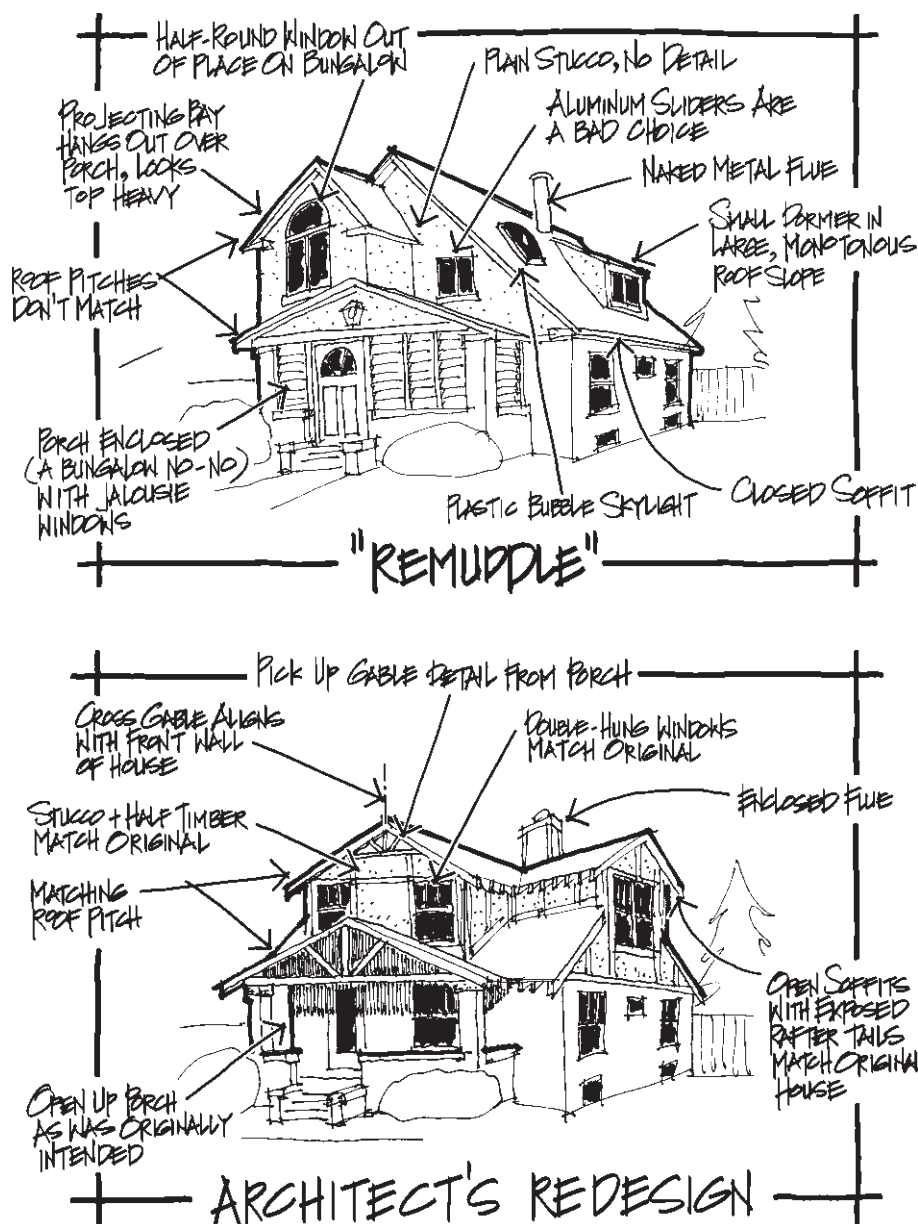 HALF-ROUND WINDOW OUT
OF PLACE ON BUNGALOW
PLAIN STUCCO, NO DETAIL
ALUMINUM SLIDERS ARE
A BAD CHOICE
PROJECTING BAY
HANGS OUT OVER
PORCH, LOOKS
TOP HEAVY
NAKED METAL FLUE
SMALL DORMER IN
LARGE, MONOTONOUS
ROOF SLOPE
ROOF PITCHES
DON'T MATCH
PORCH ENCLOSED
(A BUNGALOW NO-NO)
WITH JALOUSIE
WINDOWS
PLASTIC BUBBLE SKYLIGHT
CLOSED SOFFIT
"REMUDDLE"
PICK UP GABLE DETAIL FROM PORCH
CROSS GABLE ALIGNS
WITH FRONT WALL
OF HOUSE
DOUBLE-HUNG WINDOWS
MATCH ORIGINAL
ENCLOSED FLUE
STUCCO + HALF TIMBER
MATCH ORIGINAL
MATCHING
ROOF PITCH
OPEN SOFFITS
WITH EXPOSED
RAFTER TAILS
MATCH ORIGINAL
HOUSE
OPEN UP PORCH
AS WAS ORIGINALLY
INTENDED
ARCHITECT'S REDESIGN